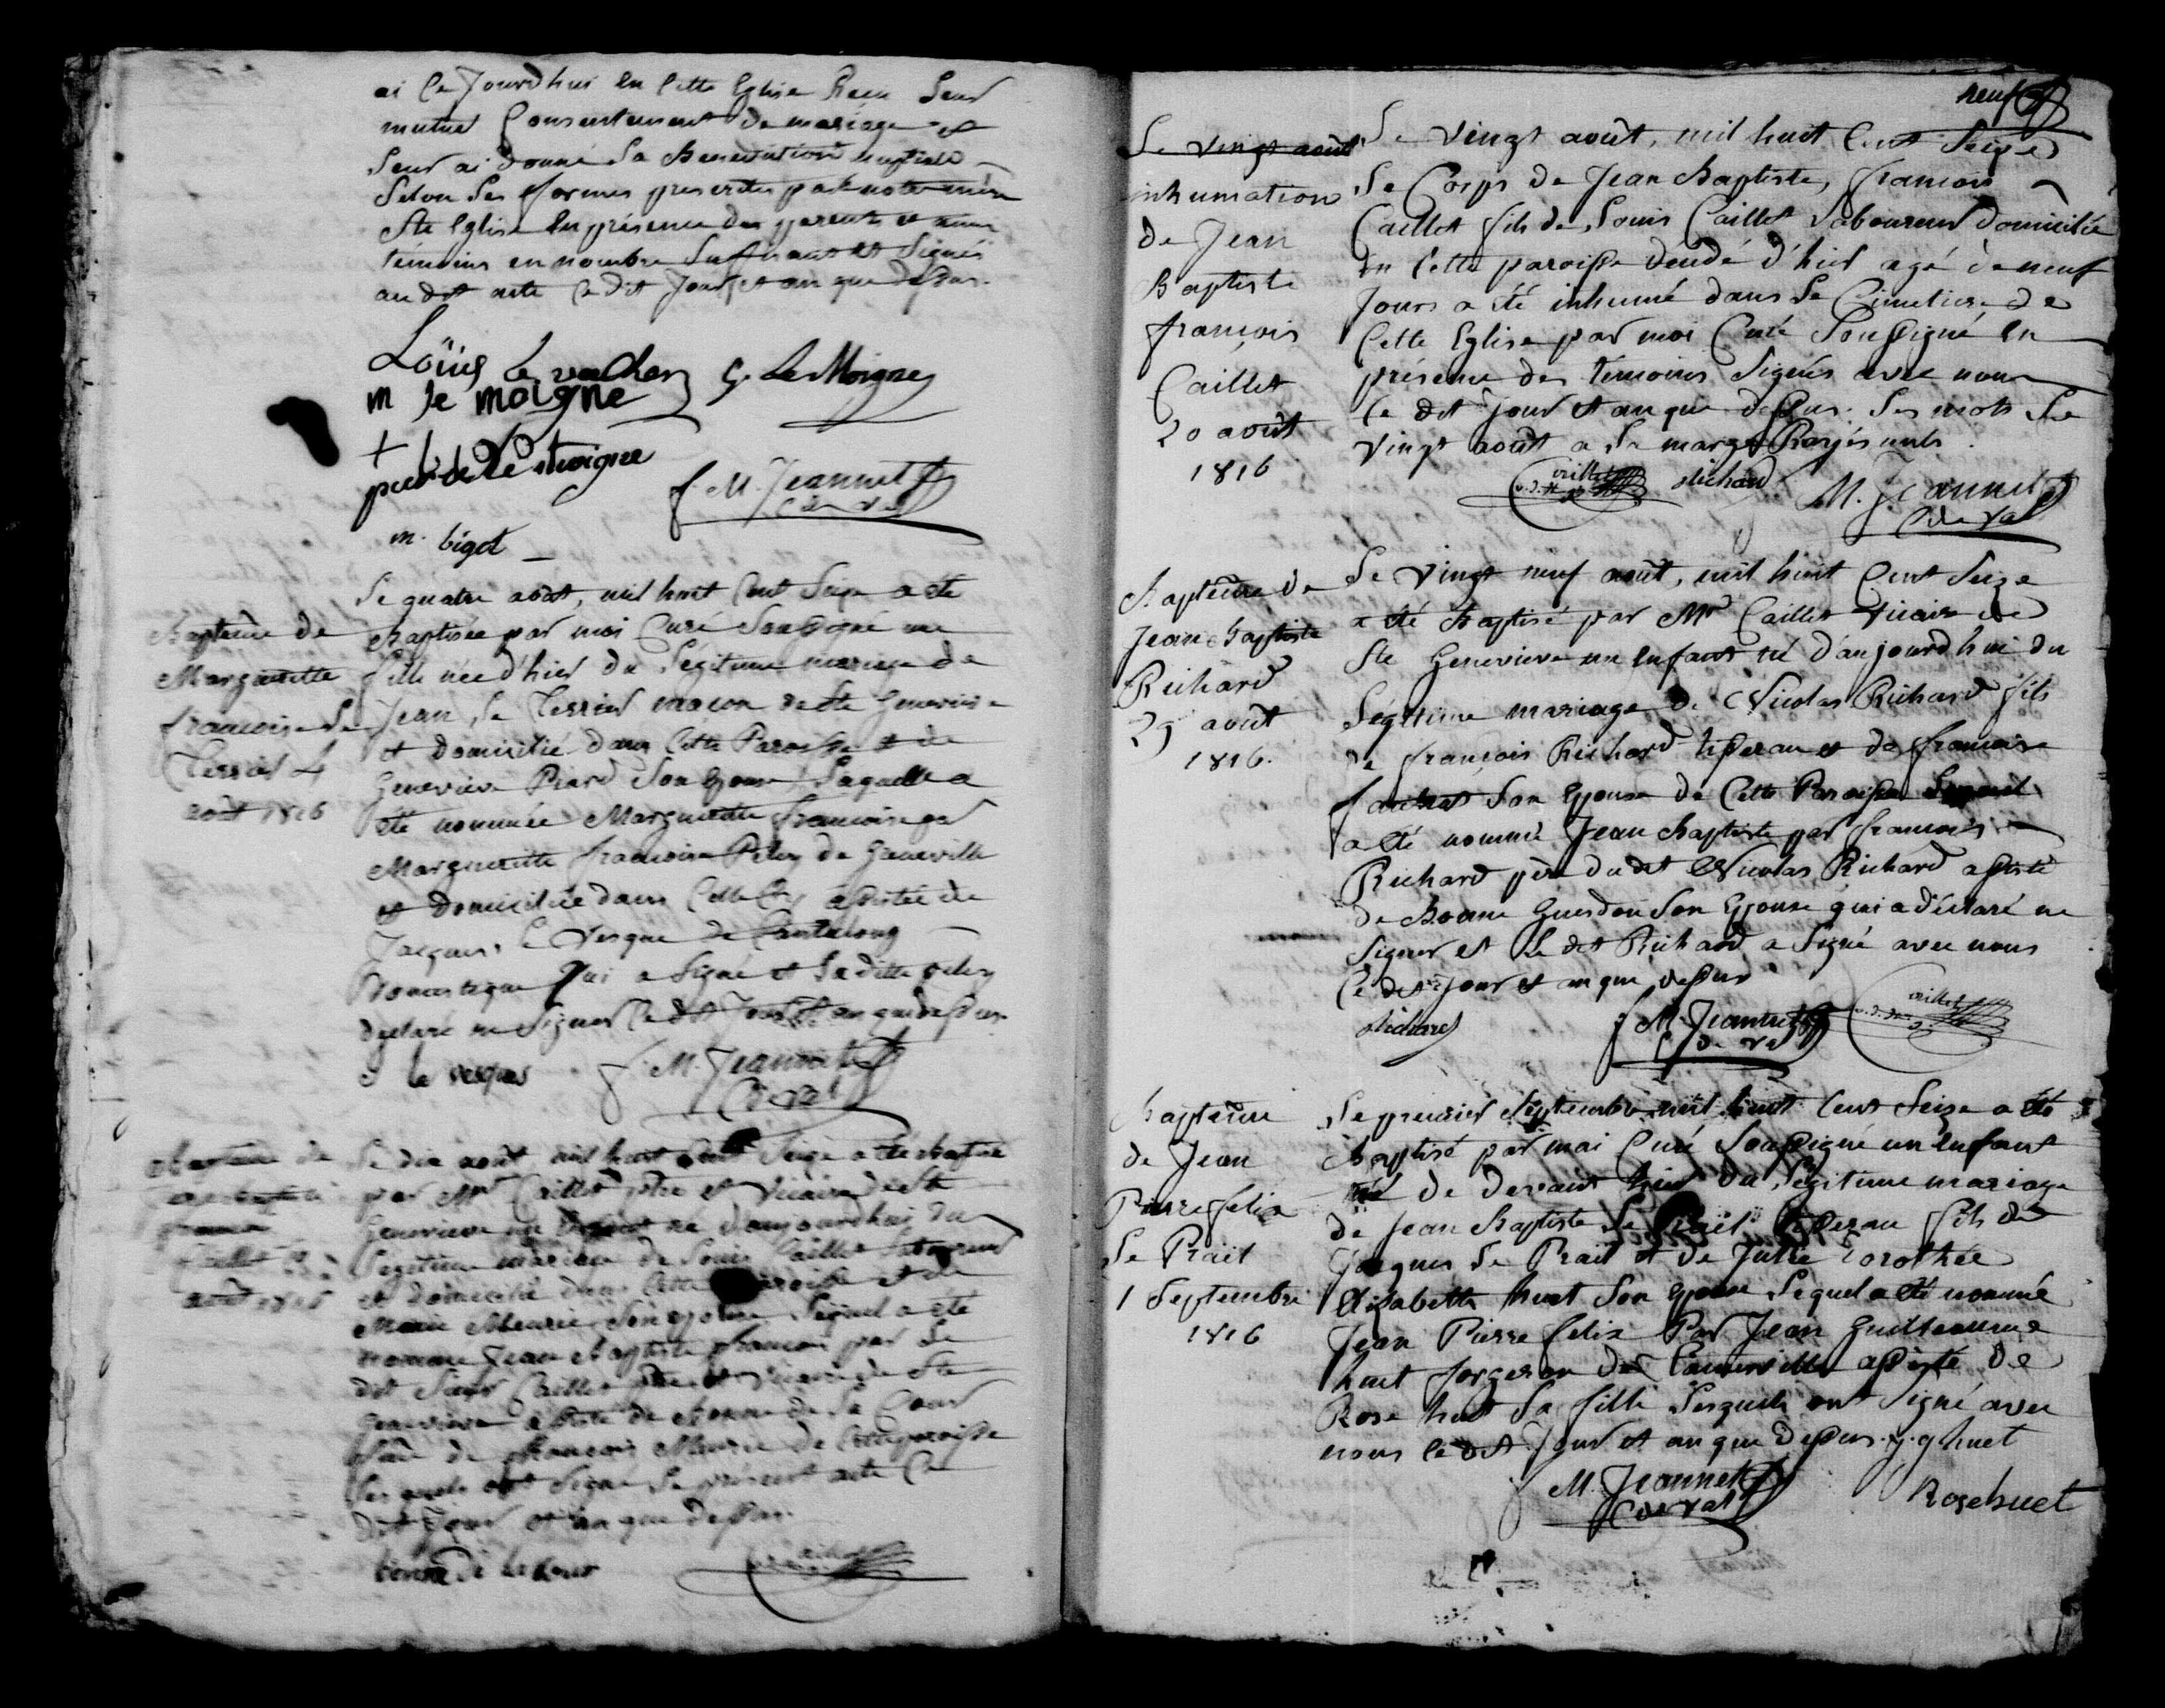 ai ce Jourdhui en cette Eglise Recu leur
mutuel Consentement de mariage et
leur ai donné la Benediction nuptiale
selon les formes prescrites par notre mère
Ste Eglise en présence des parents et amis
témoins en nombre suffisant et signés
au dit acte ce dit Jour et an que dessus.
Loüis le vacher G. Le Moigne
m le moigne
+
le moigne
f. M. Jeannet
C de Val
m. bigot
Baptême de
Marguerite
francoise Le
Terrier 4
août 1816
Le quatre août, mil huit Cent Seize a été
Baptisée par moi Curé Soussigné une
fille née d'hier du Légitime mariage de
Jean Le Terrier maçon de Ste Genevieve
et domicilié dans Cette Paroisse et de
Genevieve Piard Son Epouse Laquelle a
été nommée Marguerite francoise par
Marguerite francoise de Ganneville
et Domiciliée dans Cette assistée de
Jacques Le Vesque de Canteloup
Domestique qui a Signé et La ditte
declaré ne Signer Ce dit Jour et an que dessus.
le vesque f. M. Jeannet
C de Val
Baptême de
Jean Baptiste
francois
Caillet
août 1816
Le dix août mil huit Cent Seize a été baptisé
par Mr Caillet ptre et Vicaire de Ste
Genevieve un Enfant né d'aujourdhui du
Légitime mariage de Louis Caillet Laboureur
et domicilié dans Cette Paroisse et de
Marie Meurie Son epouse Lequel a été
nommé Jean Baptiste francois par Le
dit Sieur Caillet ptre et Vicaire de Ste
Genevieve assisté de Bonne de La Cour
de francois Meurie de Cette paroisse
Lesquels ont Signé Le présent acte Ce
dit Jour et an que dessus.
bonne de la Cour
neuf
Le vingt août
inhumation
de Jean
Baptiste
françois
Caillet
20 août
1816
Le vingt août, mil huit Cent Seize
Le Corps de Jean Baptiste, francois
Caillet fils de Louis Caillet Laboureur domicilié
en Cette paroisse décédé d'hier agé de neuf
Jours a été inhumé dans Le Cimetiere de
Cette Eglise par moi Curé Soussigné En
présence des témoins Signés avec nous
Ce dit Jour et an que dessus. Les mots Le
Vingt août a La marge Rayés nuls.
caillet Richard M. Jeannet
C de Val
Baptême de
Jean Baptiste
Richard
29 août
1816.
Le Vingt neuf août, mil huit Cent Seize
a été Baptisé par Mr Caillet Vicaire de
Ste Genevieve un Enfant né d'aujourdhui du
Légitime mariage de Nicolas Richard fils
de françois Richard tisseran et de francoise
Son Epouse de Cette Paroisse Lequel
a été nommé Jean Baptiste par francois
Richard père du dit Nicolas Richard assisté
de Bonne Guesdon Son Epouse qui a déclaré ne
Signer et Le dit Richard a Signé avec nous
Ce dit Jour et an que dessus
Richard f. M. Jeannet caillet
C de Val
Baptême
de Jean
Pierre felix
Le Prait
1 Septembre
1816
Le premier Septembre mil huit Cent Seize a été
Baptisé par moi Curé Soussigné un Enfant
né de devant hier du Légitime mariage
de Jean Baptiste Le Prait tisseran fils de
Jacques Le Prait et de Julie Dorothée
Elisabeth huet Son Epouse Lequel a été nommé
Jean Pierre felix Par Jean Guilleaume
huet forgeron de assisté de
Rose huet Sa fille Lesquels ont Signé avec
nous Ce dit Jour et an que dessus. j. g huet
f M. Jeannet
C de Val
Rose huet